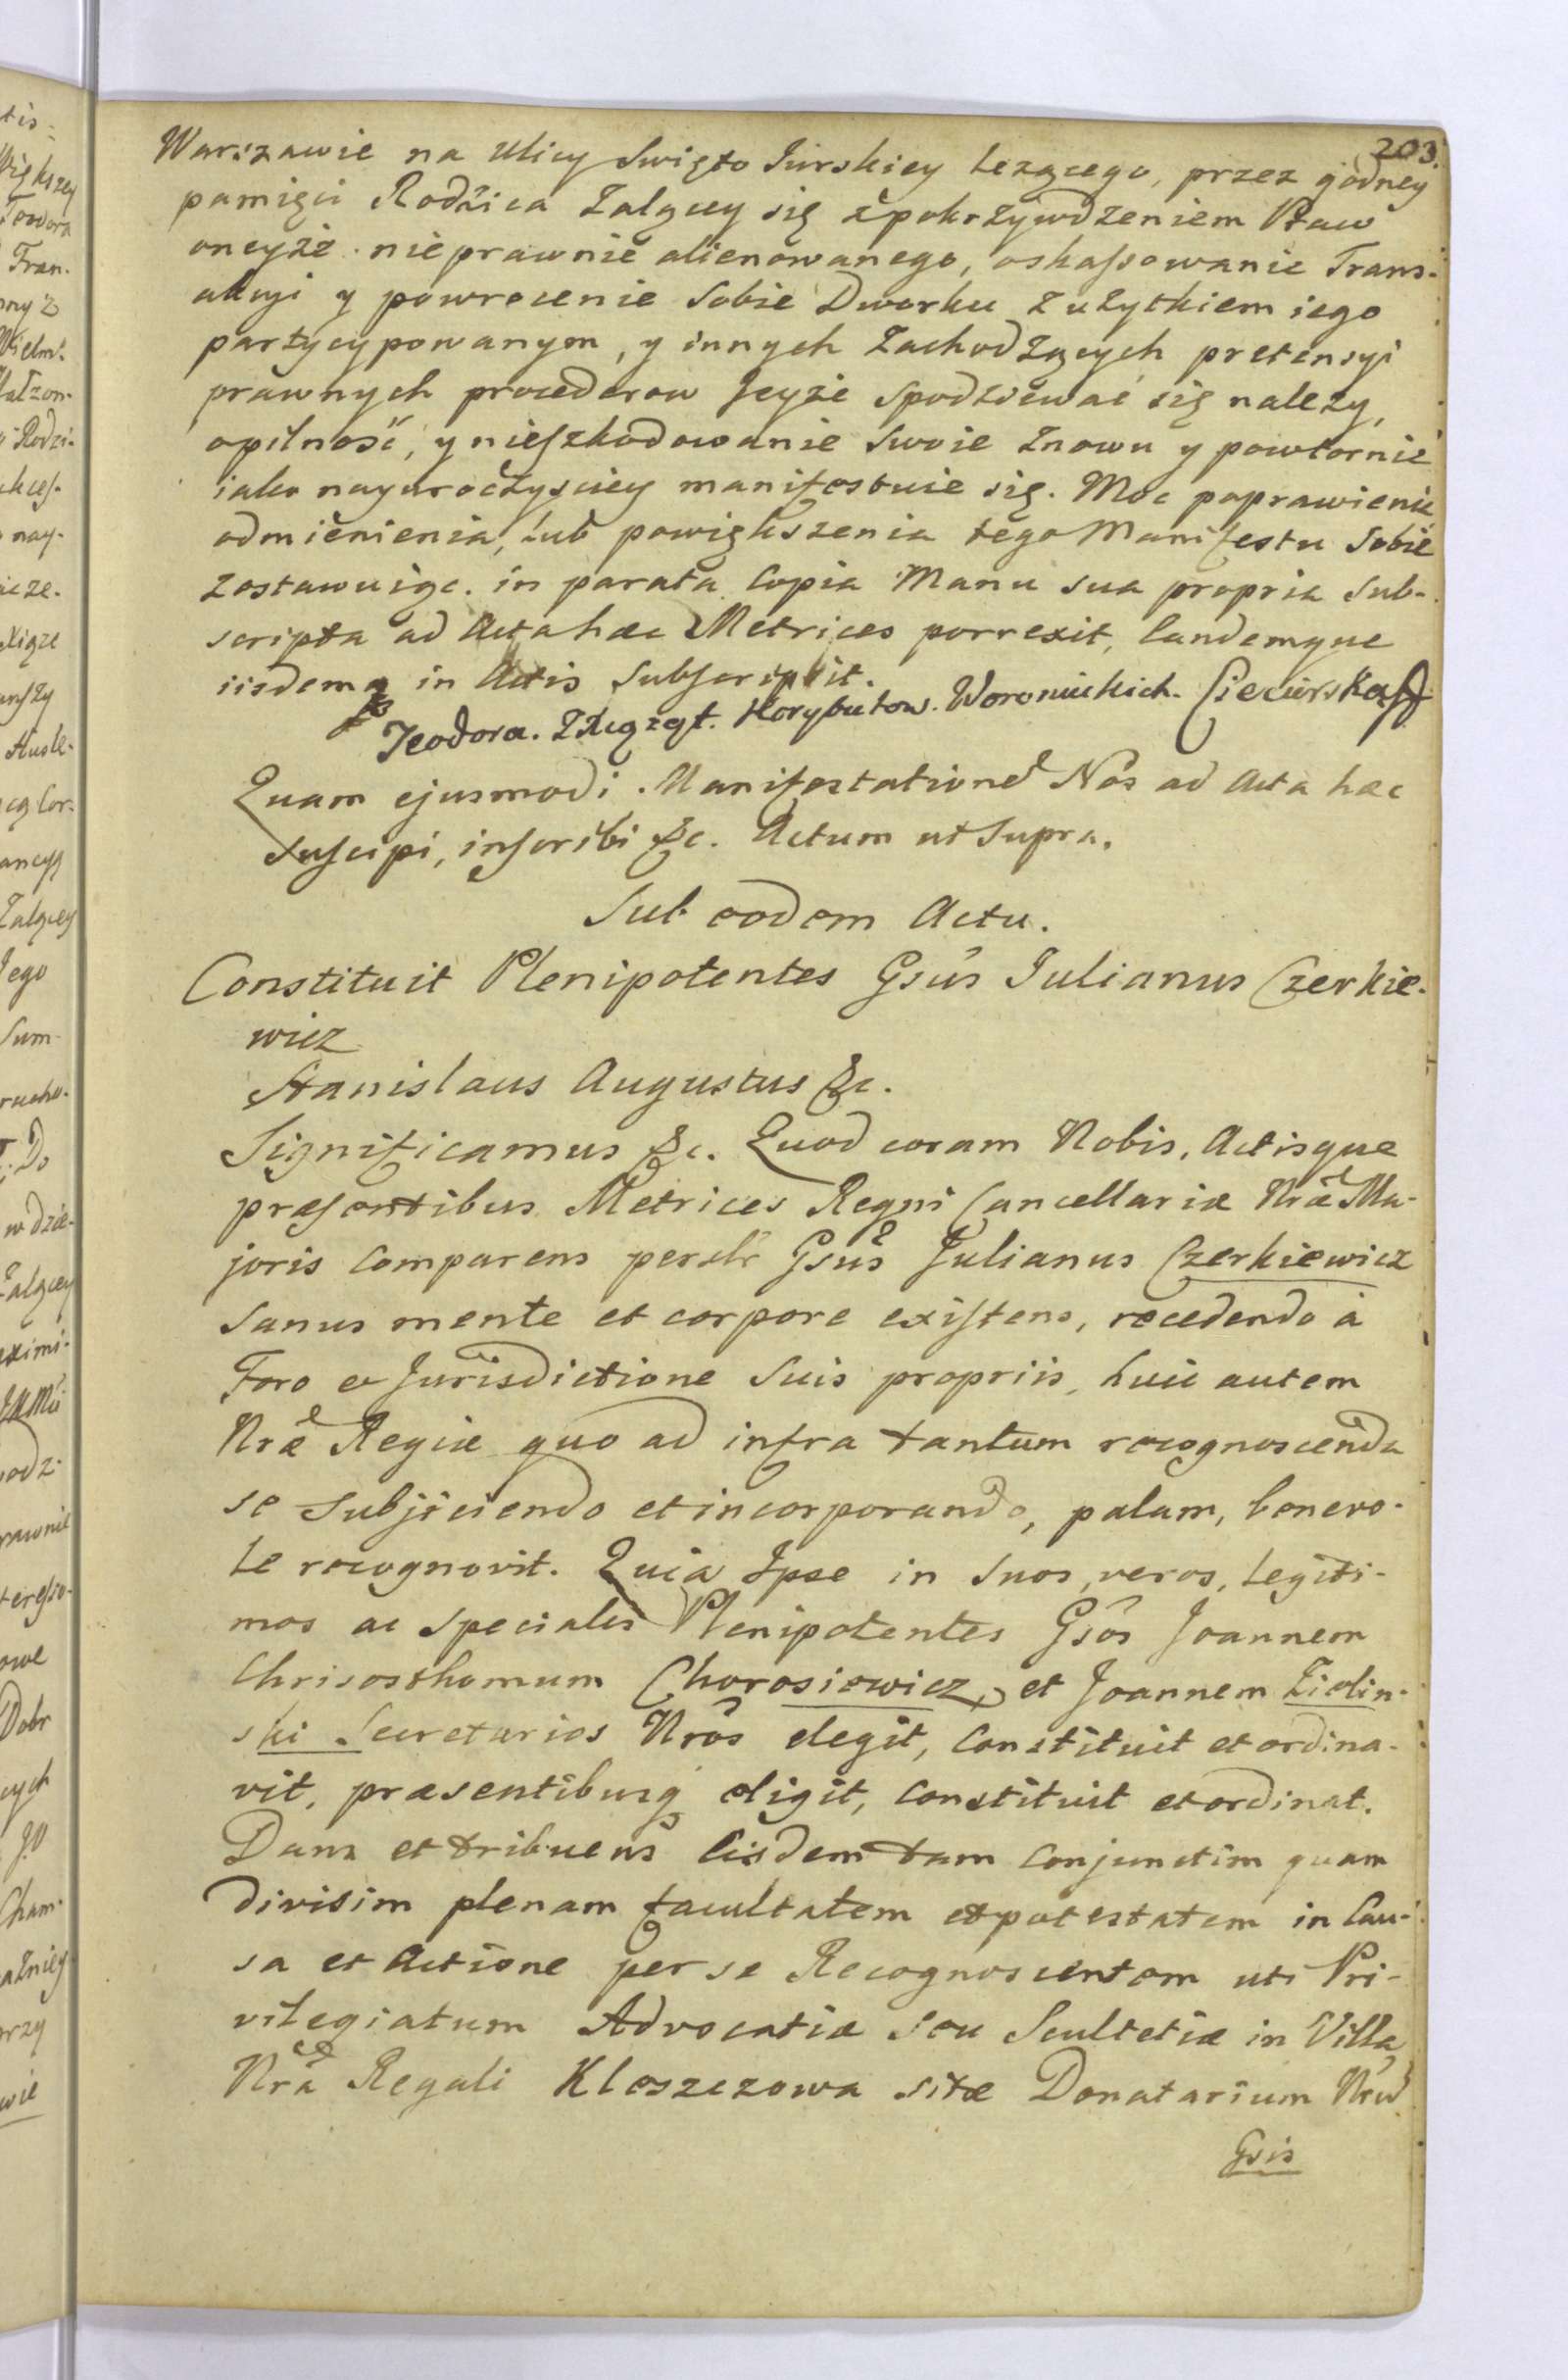 203.
Warszawie na Ulicy Swięto Jurskiey leżącego, przez godney
pamięci Rodzica Zalącey się z pokrzywdzeniem Praw
oneyże nieprawnie alienowanego, o skassowanie Trans-
akcyi y powrocenie sobie Dworku z użytkiem iego
partycypowanym, y innych zachodzących pretensyi
prawnych procederow Jeyże spodziewać się należy,
o pilność, y nieszkodowanie swoie znowu y powtornie
iako nayuroczysciey manifestuie się. Moc poprawienia
odmienienia, lub powiększenia tego Manifestu sobie
zostawuiąc. in parata Copia Manu sua propria sub-
scripta ad Acta hæc Metrices porrexit, Eandemque
iisdemq in Actis subscripsit.
Teodora. Z Xiążąt. Korybutow. Woronieckich. Ciecierska
Quam ejusmodi Manifestatione Nos ad Acta hæc
suscipi, inscribi &c. Actum ut supra.
Sub eodem Actu.
Constituit Plenipotentes Gsus Julianus Czerkie-
wicz
Stanislaus Augustus &c.
Significamus &c. Quod coram Nobis, Actisque
præsentibus Metrices Regni Cancellariæ Nræ Ma-
joris Comparens perslr Gsus Julianus Czerkiewicz
sanus mente et corpore existens, recedendo à
Foro et Jurisdictione suis propriis, huic autem
Nræ Regiæ quo ad infra tantum recognoscenda
se subjiciendo et incorporando, palam, benevo-
le recognovit. Quia Ipse in suos, veros, legiti-
mos ac speciales Plenipotentes Gsos Joannem
Chrisosthomum Chorosiewicz, et Joannem Zielin-
ski Secretarios Nros elegit, Constituit et ordina-
vit, præsentibusq eligit, Constituit et ordinat.
Dans et tribuens Eisdem tam Conjunctim quam
divisim plenam facultatem et potestatem in Cau-
sa et Actione per se Recognoscentem uti Pri-
vilegiatum Advocatiæ seu Scultetiæ in Villa
Nra Regali Kloszczowa sitæ Donatarium Nrū
Gsis